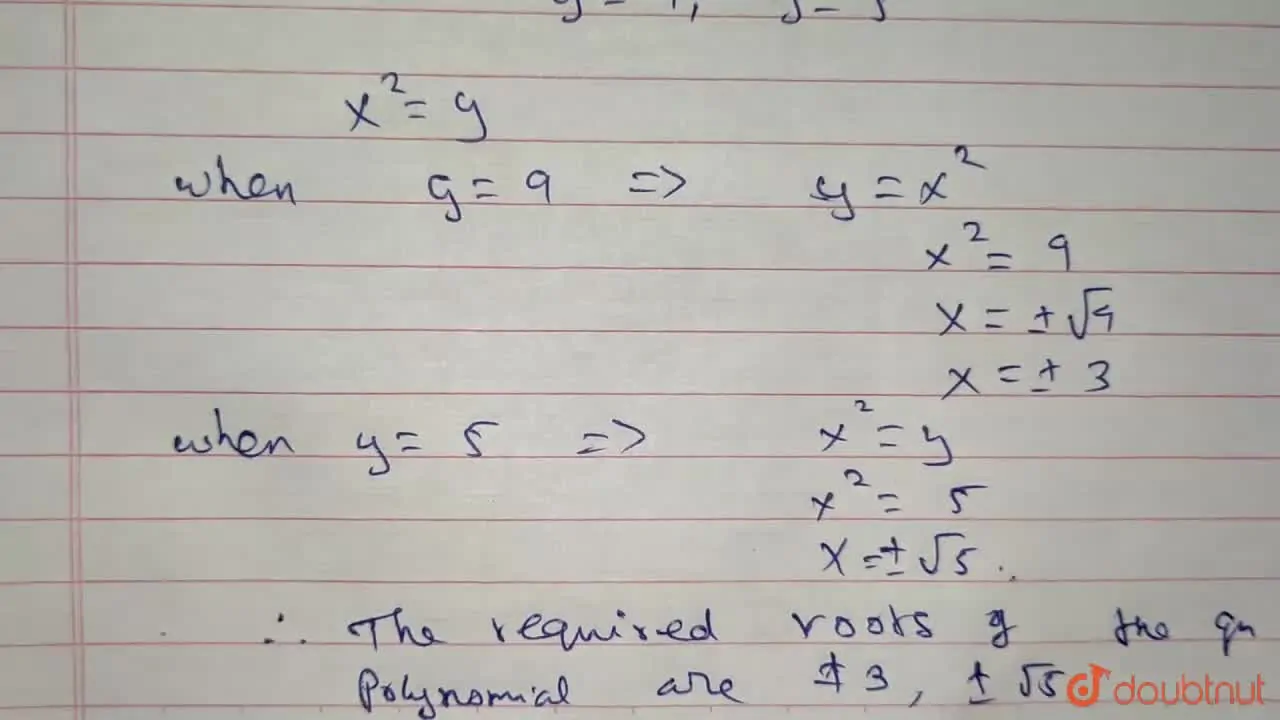 x² = y
when y = 9 => y = x²
x² = 9
x = ± √9
x = ± 3
when y = 5 => x² = y
x² = 5
x = ± √5.
∴ The required roots of the
Polynomial are ± 3, ± √5
doubtnut